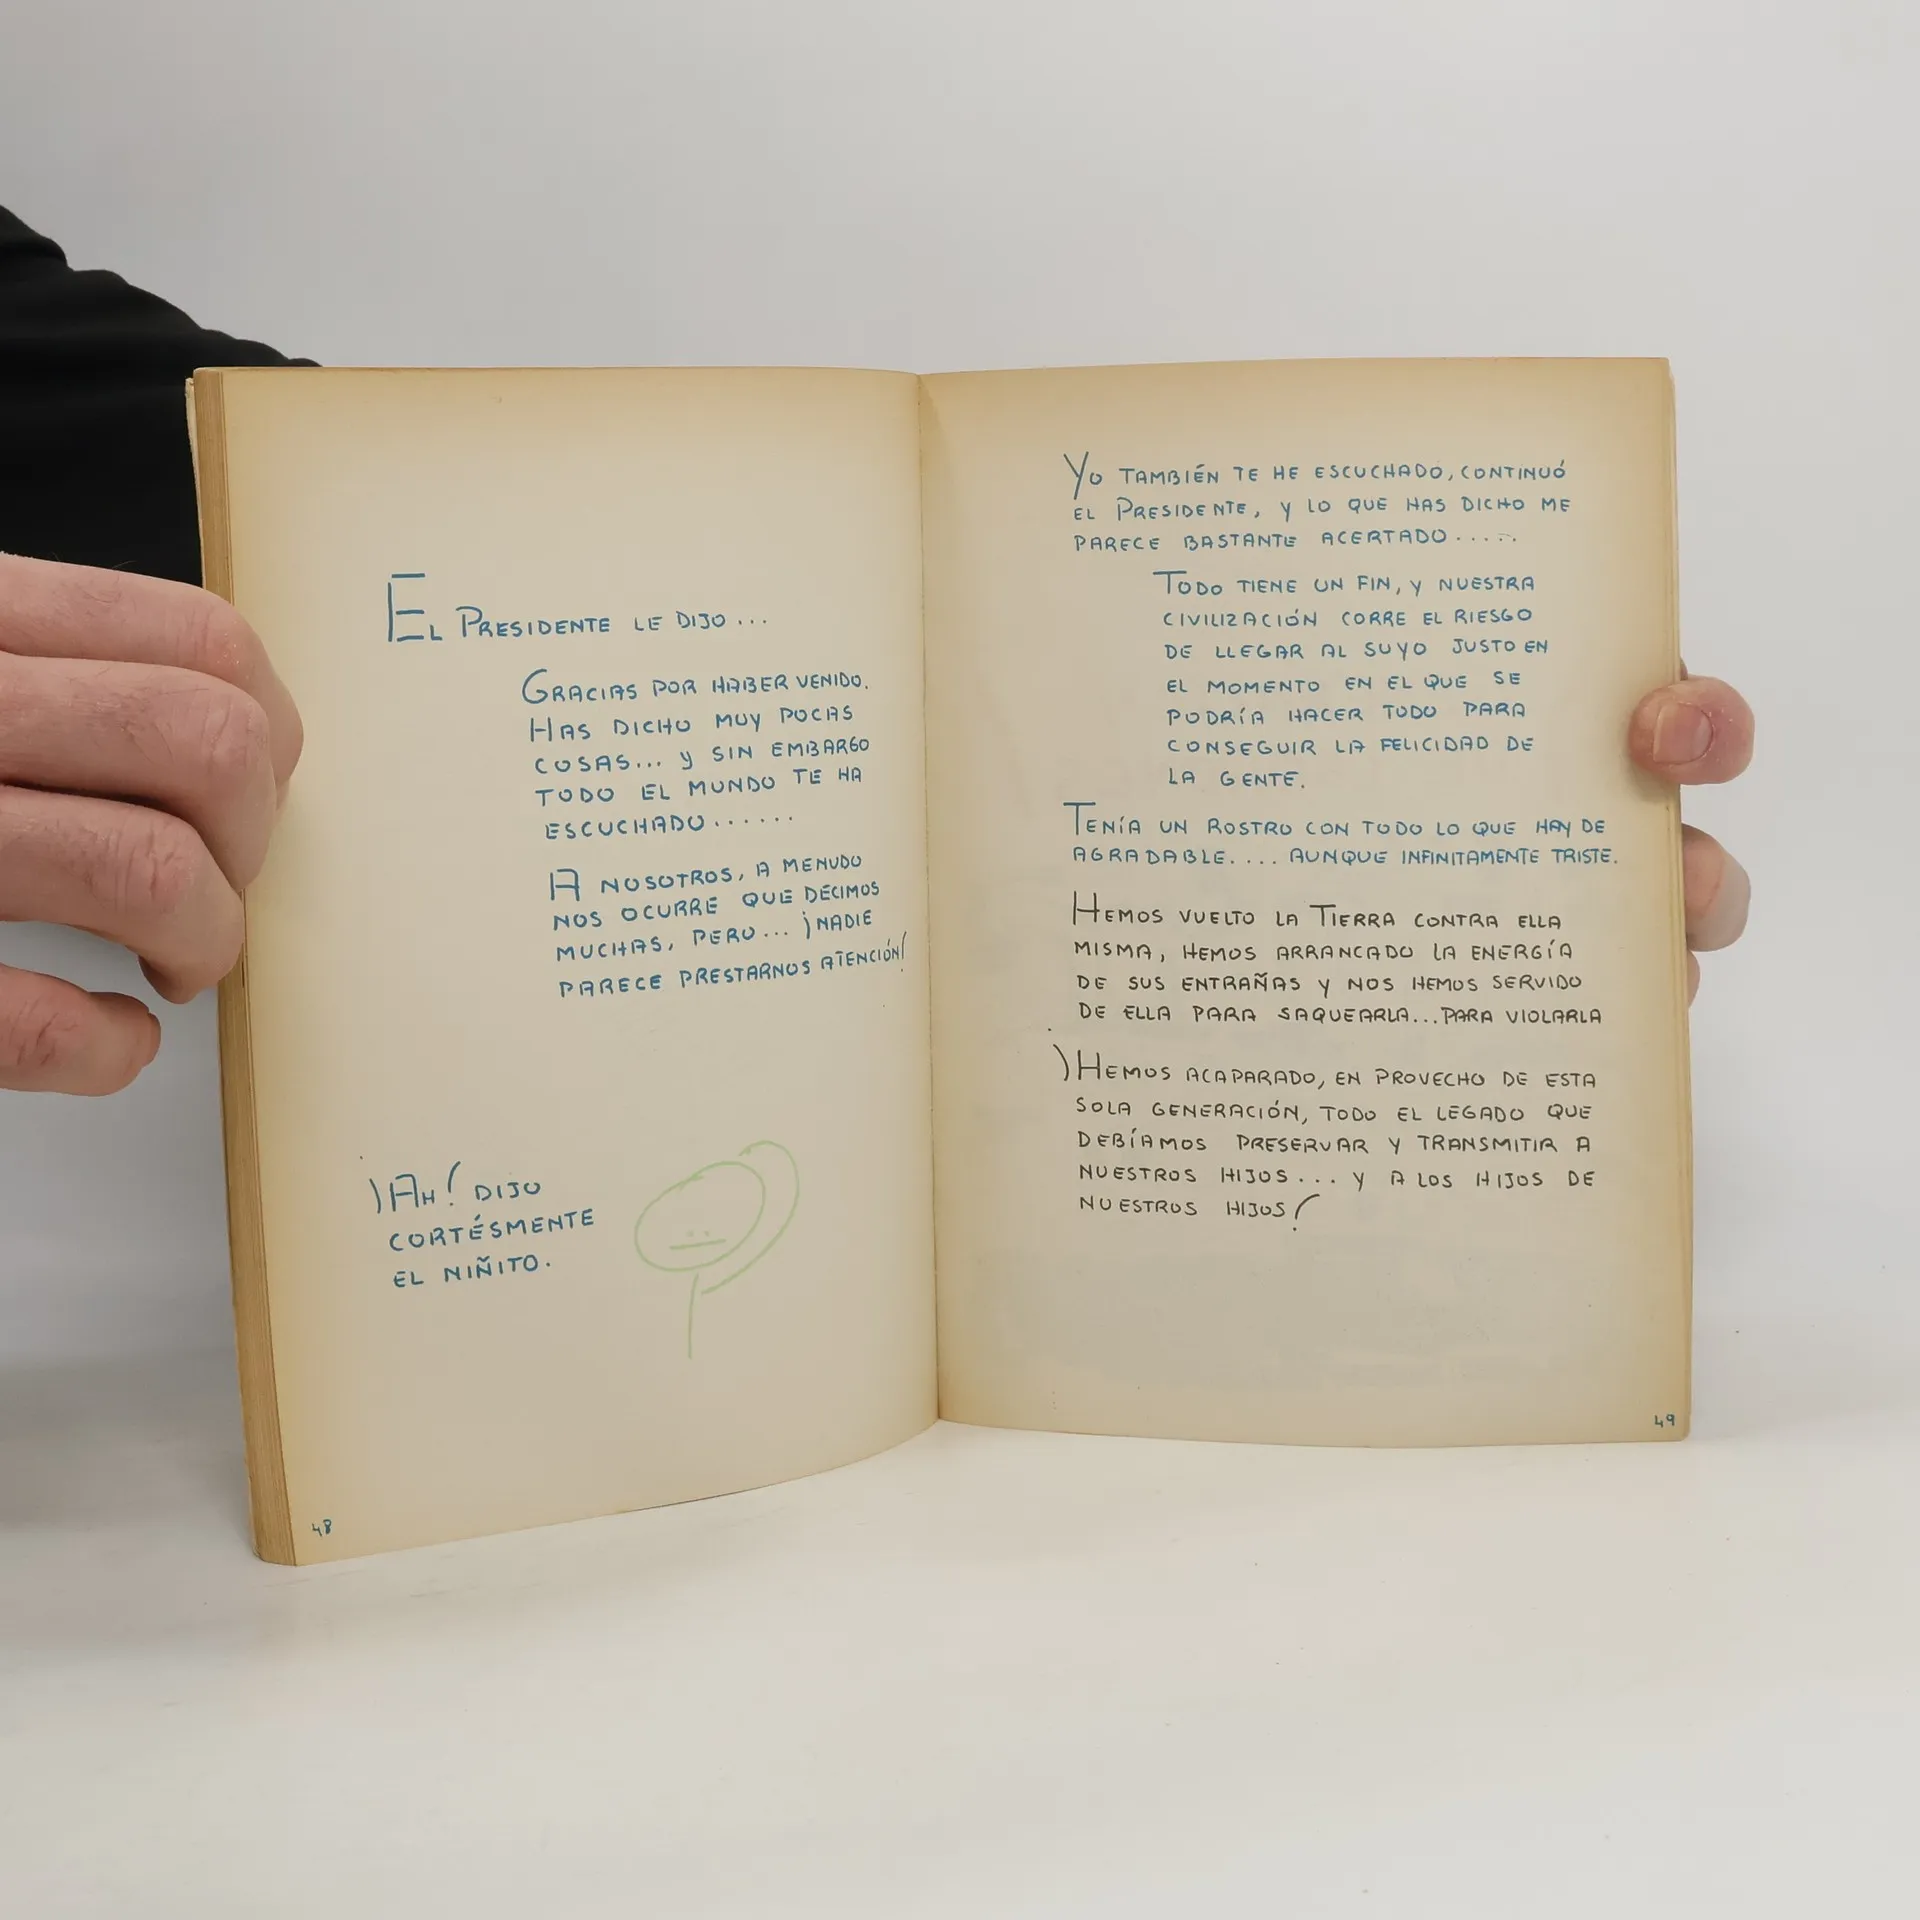 El Presidente le dijo...
Gracias por haber venido.
Has dicho muy pocas
cosas... y sin embargo
todo el mundo te ha
escuchado......
A nosotros, a menudo
nos ocurre que decimos
muchas, pero... ¡nadie
parece prestarnos atención!
¡Ah! dijo
cortésmente
el niñito.
48
Yo también te he escuchado, continuó
el Presidente, y lo que has dicho me
parece bastante acertado.....
Todo tiene un fin, y nuestra
civilización corre el riesgo
de llegar al suyo justo en
el momento en el que se
podría hacer todo para
conseguir la felicidad de
la gente.
Tenía un rostro con todo lo que hay de
agradable.... aunque infinitamente triste.
Hemos vuelto la Tierra contra ella
misma, hemos arrancado la energía
de sus entrañas y nos hemos servido
de ella para saquearla...para violarla
¡Hemos acaparado, en provecho de esta
sola generación, todo el legado que
debíamos preservar y transmitir a
nuestros hijos... y a los hijos de
nuestros hijos!
49